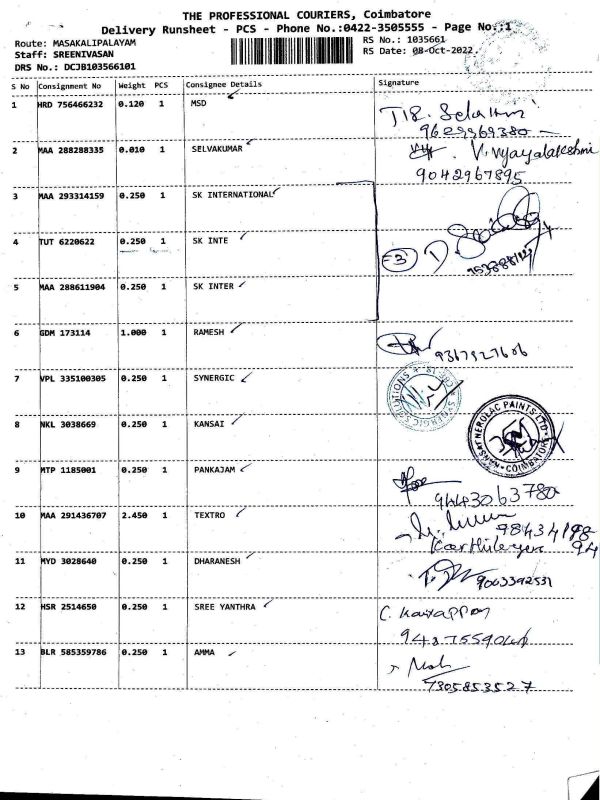 THE PROFESSIONAL COURIERS, Coimbatore
Delivery Runsheet - PCS - Phone No.:0422-3505555 - Page No.:1
Route: MASAKALIPALAYAM
Staff: SREENIVASAN
DRS No.: DCJB103566101
RS No.: 1035661
RS Date: 08-Oct-2022
S No Consignment No Weight PCS Consignee Details Signature
1 HRD 756466232 0.120 1 MSD
9629969380
2 MAA 288288335 0.010 1 SELVAKUMAR V. Vijayalakshmi
9042967895
3 MAA 293314159 0.250 1 SK INTERNATIONAL
4 TUT 6220622 0.250 1 SK INTE
=3
5 MAA 288611904 0.250 1 SK INTER
6 GDM 173114 1.000 1 RAMESH
9367927606
7 VPL 335100305 0.250 1 SYNERGIC
SYNERGIC SOLUTIONS
8 NKL 3038669 0.250 1 KANSAI
KANSAI NEROLAC PAINTS LTD
COIMBATORE
9 MTP 1185001 0.250 1 PANKAJAM
9443063780
10 MAA 291436707 2.450 1 TEXTRO
98434198
Karthikeyan 94
11 MYD 3028640 0.250 1 DHARANESH
9003392531
12 HSR 2514650 0.250 1 SREE YANTHRA C. Karuppan
13 BLR 585359786 0.250 1 AMMA
7305853527